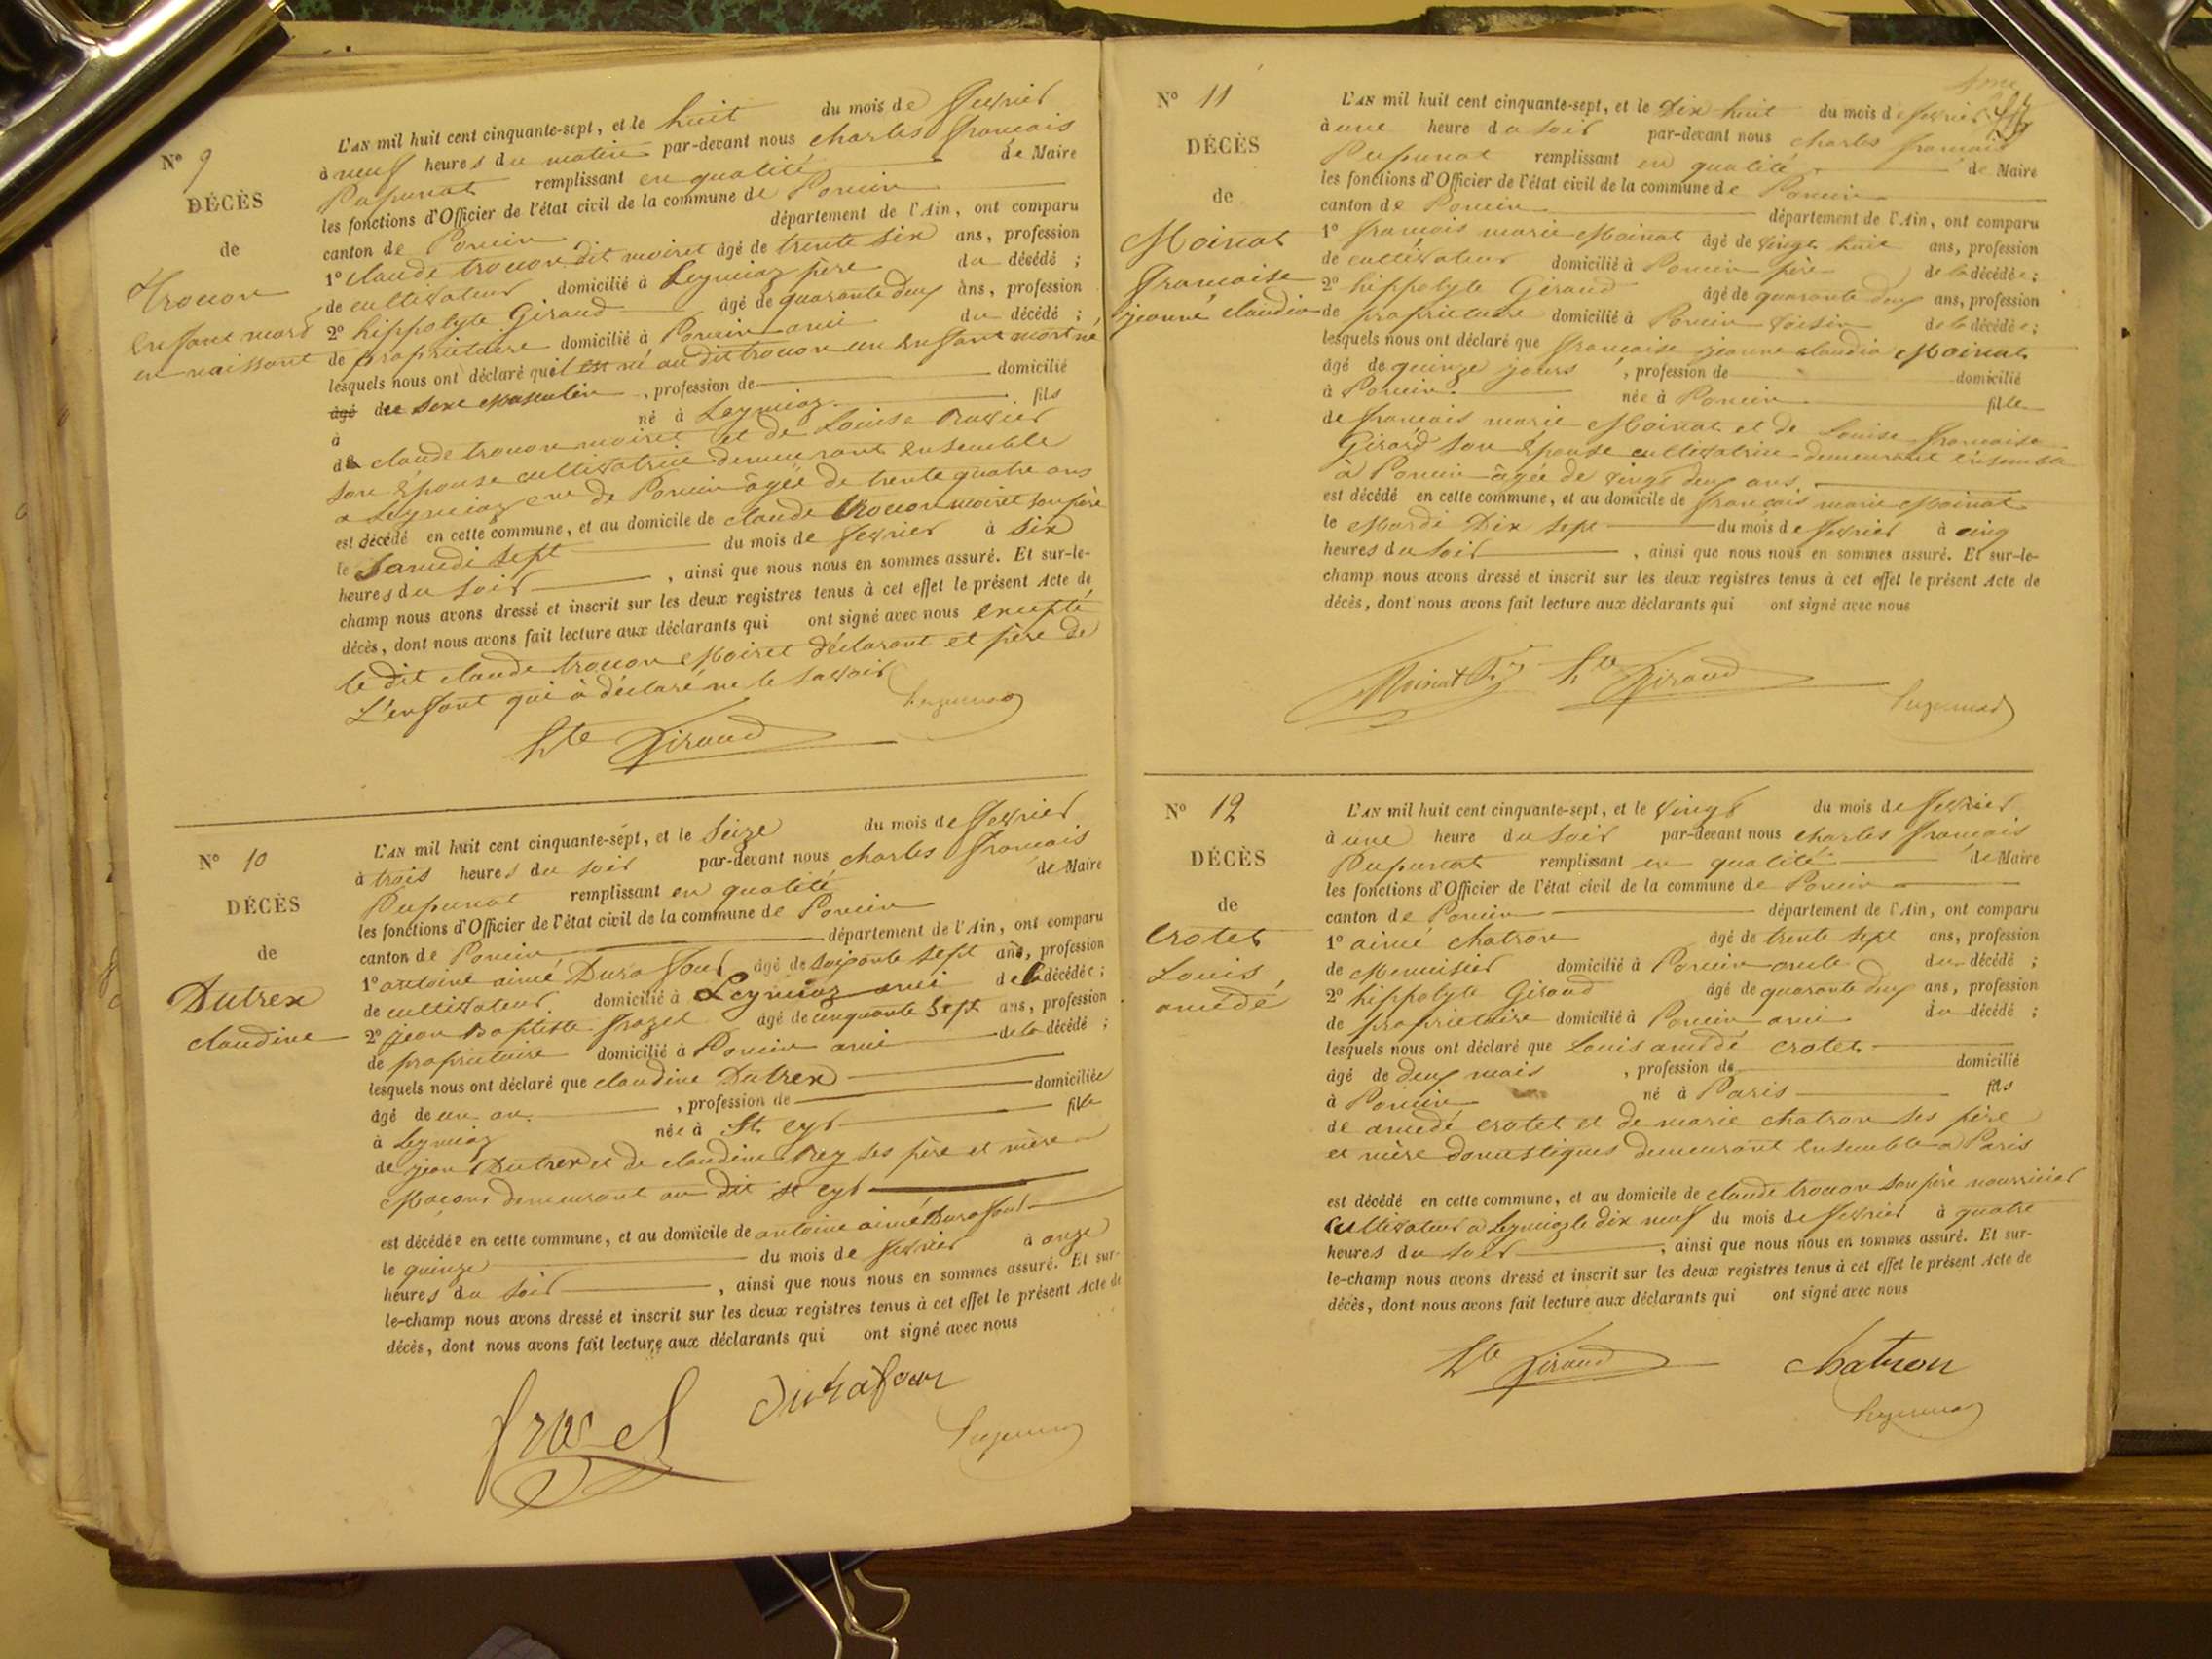 N° 9
DÉCÈS
de
trouon
enfant mort
en naissant
L'AN mil huit cent cinquante-sept, et le huit du mois de fevrier
à neuf heures du matin par-devant nous charles francois
Pupunat remplissant en qualité de Maire
les fonctions d'Officier de l'état civil de la commune de Poncin
canton de Poncin département de l'Ain, ont comparu
1° claude trouon dit moiret âgé de trente six ans, profession
de cultivateur domicilié à Leymiaz père du décédé ;
2° hippolyte Giraud âgé de quarante deux ans, profession
de propriétaire domicilié à Poncin ami du décédé ;
lesquels nous ont déclaré qu'il est né au dit trouon un enfant mort né
âgé de sexe Masculin , profession de domicilié
à né à Leymiaz fils
de claude trouon moiret et de Louise
son épouse cultivatrice demeurant ensemble
a Leymiaz cne de Poncin âgée de trente quatre ans
est décédé en cette commune, et au domicile de claude trouon moiret son père
le Samedi sept du mois de fevrier à six
heures du soir , ainsi que nous nous en sommes assuré. Et sur-le-
champ nous avons dressé et inscrit sur les deux registres tenus à cet effet le présent Acte de
décès, dont nous avons fait lecture aux déclarants qui ont signé avec nous excepté
le dit claude trouon Moiret déclarant et père de
L'enfant qui à déclaré ne le savoir
hte Giraud Pupunat
N° 10
DÉCÈS
de
Dutrex
claudine
L'AN mil huit cent cinquante-sept, et le Seize du mois de fevrier
à trois heures du soir par-devant nous charles francois
Pupunat remplissant en qualité de Maire
les fonctions d'Officier de l'état civil de la commune de Poncin
canton de Poncin département de l'Ain, ont comparu
1° antoine aimé Durafour âgé de soixante sept ans, profession
de cultivateur domicilié à Leymiaz ami de la décédée ;
2° jean Baptiste frazet âgé de cinquante Sept ans, profession
de propriétaire domicilié à Poncin ami de la décédé ;
lesquels nous ont déclaré que claudine Dutrex
âgé de un an , profession de domiciliée
à Leymiaz née à St cyr fille
de jean Dutrex et de claudine Rey ses père et mère
Maçons demeurant au dit st cyr
est décédée en cette commune, et au domicile de antoine aimé Durafour
le quinze du mois de fevrier à onze
heures du soir , ainsi que nous nous en sommes assuré. Et sur-
le-champ nous avons dressé et inscrit sur les deux registres tenus à cet effet le présent Acte de
décès, dont nous avons fait lecture aux déclarants qui ont signé avec nous
frazet Durafour
Pupunat
N° 11
DÉCÈS
de
Moinat
francoise
jeanne claudia
L'AN mil huit cent cinquante-sept, et le Dix huit du mois de fevrier
à une heure du soir par-devant nous charles francois
Pupunat remplissant en qualité de Maire
les fonctions d'Officier de l'état civil de la commune de Poncin
canton de Poncin département de l'Ain, ont comparu
1° francois marie Moinat âgé de vingt huit ans, profession
de cultivateur domicilié à Poncin père de la décédée ;
2° hippolyte Giraud âgé de quarante deux ans, profession
de propriétaire domicilié à Poncin voisin de la décédée ;
lesquels nous ont déclaré que francoise jeanne claudia Moinat
âgé de quinze jours , profession de domicilié
à Poncin née à Poncin fille
de francois marie Moinat et de Louise francoise
Girard son épouse cultivatrice demeurant ensemble
à Poncin âgée de vingt deux ans
est décédé en cette commune, et au domicile de francois marie Moinat
le Mardi Dix sept du mois de fevrier à cinq
heures du soir , ainsi que nous nous en sommes assuré. Et sur-le-
champ nous avons dressé et inscrit sur les deux registres tenus à cet effet le présent Acte de
décès, dont nous avons fait lecture aux déclarants qui ont signé avec nous
Moinat hte Giraud
Pupunat
N° 12
DÉCÈS
de
Crotet
Louis
amédé
L'AN mil huit cent cinquante-sept, et le vingt du mois de fevrier
à une heure du soir par-devant nous charles francois
Pupunat remplissant en qualité de Maire
les fonctions d'Officier de l'état civil de la commune de Poncin
canton de Poncin département de l'Ain, ont comparu
1° aimé chatron âgé de trente sept ans, profession
de Menuisier domicilié à Poncin oncle du décédé ;
2° hippolyte Giraud âgé de quarante deux ans, profession
de propriétaire domicilié à Poncin ami du décédé ;
lesquels nous ont déclaré que Louis amédé crotet
âgé de deux mois , profession de domicilié
à Poncin né à Paris fils
de amédé crotet et de marie chatron ses père
et mère domestiques demeurant ensemble a Paris
est décédé en cette commune, et au domicile de claude trouon son père nourricier
cultivateur a Leymiaz le dix neuf du mois de fevrier à quatre
heures du soir , ainsi que nous nous en sommes assuré. Et sur-
le-champ nous avons dressé et inscrit sur les deux registres tenus à cet effet le présent Acte de
décès, dont nous avons fait lecture aux déclarants qui ont signé avec nous
hte Giraud chatron
Pupunat